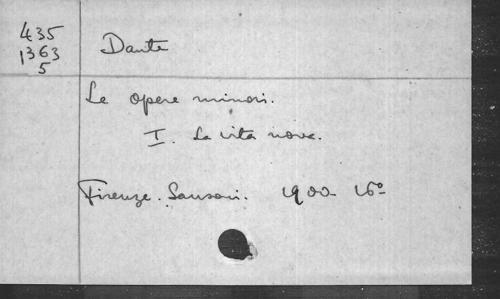 435
1363
5
Dante
Le opere minori.
I. La vita nova.
Firenze. Sansoni. 1900 16º